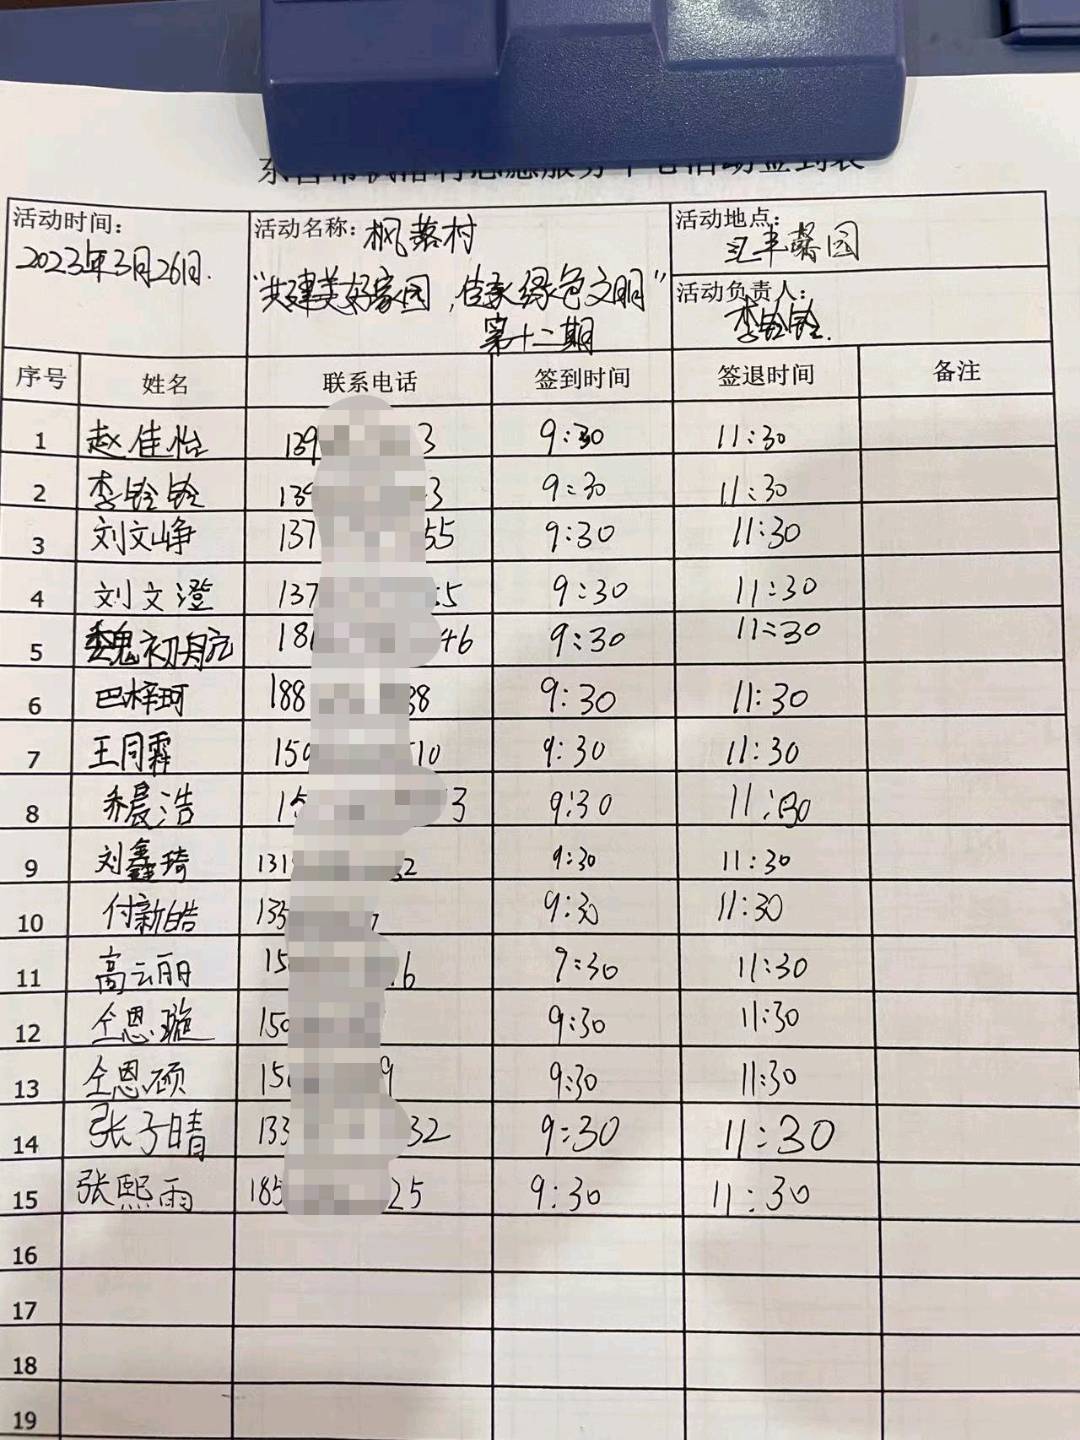 活动时间：
2023年3月26日.
活动名称：枫落村
"共建美好家园，传承绿色文明"
第十二期
活动地点：
汇丰馨园
活动负责人：
李铃铃
序号 姓名 联系电话 签到时间 签退时间 备注
1 赵佳怡 139 3 9:30 11:30
2 李铃铃 139 3 9:30 11:30
3 刘文峥 137 55 9:30 11:30
4 刘文澄 137 5 9:30 11:30
5 魏初 18 46 9:30 11:30
6 巴梓珂 188 38 9:30 11:30
7 王同霖 150 10 9:30 11:30
8 乔晨浩 15 3 9:30 11:30
9 刘鑫琦 131 2 9:30 11:30
10 付新皓 133 9:30 11:30
11 高云丽 15 6 9:30 11:30
12 仝恩璇 150 9:30 11:30
13 仝恩硕 150 9 9:30 11:30
14 张子晴 133 32 9:30 11:30
15 张熙雨 185 25 9:30 11:30
16
17
18
19